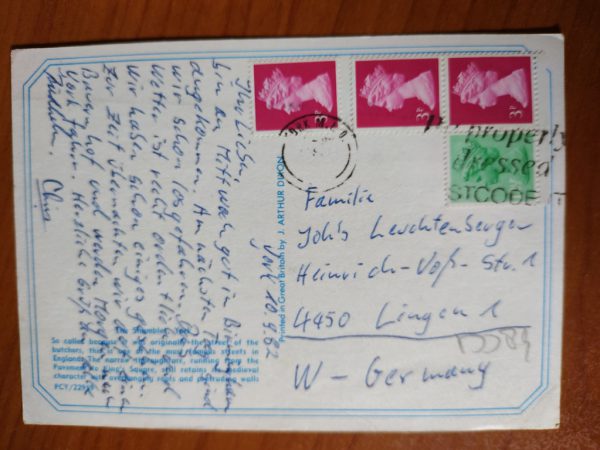 Ihr Lieben,
bin am Mittwoch gut in Birmingham
angekommen. Am nächsten Tag sind
wir schon losgefahren. Das
Wetter ist recht ordentlich und
wir haben schon einiges gesehen.
Zur Zeit übernachten wir
Bauernhof und werden Morgen
York fahren. Herzliche Grüße
York 10.9.82
The Shambles
So called because it was originally the street of the
butchers, this is one of the most famous streets in
England. The narrow running from the
Pavement to King's Square, still retains medieval
character with overhanging roofs and protruding walls
Printed in Great Britain by J. ARTHUR DIXON
3P
3P
3P
properly
dressed
STCODE
Familie
Joh's Leuchtenberger
Heinrich-Voß-Str. 1
4450 Lingen 1
W-Germany